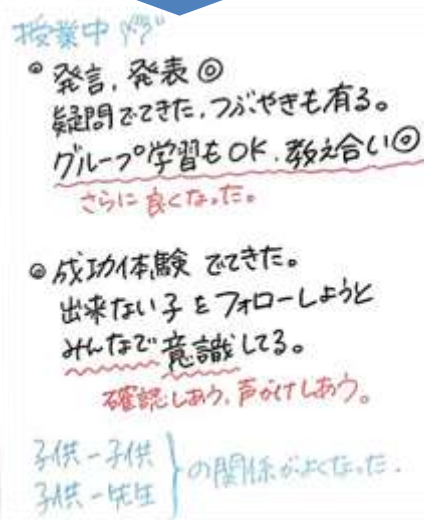 授業中
◎発言,発表◎
疑問でてきた,つぶやきも有る。
グループ学習もOK.教え合い◎
さらに良くなった。
◎成功体験 でてきた。
出来ない子をフォローしようと
みんなで意識してる。
確認しあう,声がけしあう。
子供-子供
子供-先生
の関係がよくなった.